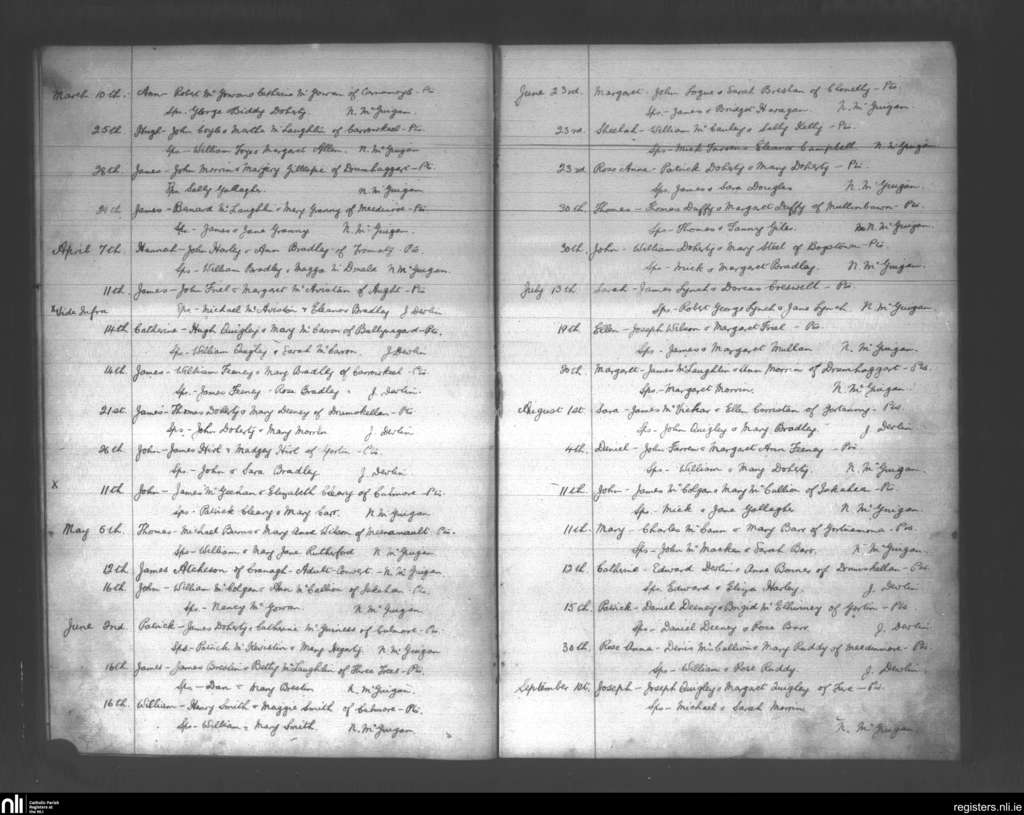 March 10th. Ann - Robt McGowan & Catherine McGowan of - Ps
Sps. George & Biddy Doherty. N. McGuigan.
25th Hugh - John Coyle & Martha McLaughlin of Carrowkeel - Ps.
Sps - William Toye & Margaret Allen. N. McGuigan
28th James - John Morrin & Marjory Gillespie of Drumhaggart - Ps.
Sps Sally Gallagher. N. McGuigan
James - Bernard McLaughlin & Mary Granny of - Ps.
Sps - James & Jane Granny N. McGuigan.
April 7th Hannah - John Harley & Ann Bradley of - Ps.
Sps - William Bradley & Magga N. McGuigan.
11th James - John Friel & Margaret McAvistan of Aught - Ps
x Vide Infra Sps - Michael McAviston & Eleanor Bradley J Devlin
14th Catherine - Hugh Quigley & Mary McCarron of - Ps.
Sps - William Quigley & Sarah McCarron. J Devlin
14th James - William Feeney & Mary Bradley of Carrowkeel - Ps
Sps - James Feeney - Rose Bradley - J. Devlin.
21st James - Thomas Doherty & Mary Deeney of Drumskellan - Ps
Sps - John Doherty & Mary Morrin J Devlin
26th John - James Hirl & Madgey Hirl of Gortin - Ps.
Sps - John & Sara Bradley J. Devlin
x 11th John - James McGeehan & Elizabeth Cleary of Culmore - Ps.
Sps - Patrick Cleary & Mary Carr. N. McGuigan
May 5th. Thomas - Michael Burns & Mary Anne Wilson of - Ps.
Sps - William & Mary Jane Rutherford N McGuigan
12th James Atcheson of Cranagh - Adult Convert - N. McGuigan.
16th John - William McColgan & Ann McCallion of - Ps.
Sps - Nancy McGowan. N. McGuigan
June 2nd. Patrick - James Doherty & Catherine McGuiness of Culmore - Ps.
Sps - Patrick & Mary N. McGuigan
16th James - James Breslin & Betty McLaughlin of Three Trees - Ps.
Sps - Dan & Mary Breslin N. McGuigan.
16th. William - Henry Smith & Maggie Smith of Culmore - Ps.
Sps - William & Mary Smith. N. McGuigan
June 23rd. Margaret - John Logue & Sarah Breslan of - Ps.
Sps - James & Bridget Haragan. N. McGuigan
23rd. Sheelah - William McCauley & Sally Kelly - Ps.
Sps - Mick Farren & Eleanor Campbell N. McGuigan
23rd Rose Anne - Patrick Doherty & Mary Doherty - Ps.
Sps. James & Sara Douglas N. McGuigan.
30th. Thomas - Thomas Duffy & Margaret Duffy of - Ps.
Sps - Thomas & Fanny N. McGuigan.
30th. John - William Doherty & Mary Steel of - Ps.
Sps - Mick & Margaret Bradley. N. McGuigan.
July 13th. Sarah - James Lynch & Dorcas Creswell - Ps.
Sps - Robt George Lynch & Jane Lynch N. McGuigan
19th. Ellen - Joseph Wilson & Margaret Friel - Ps.
Sps - James & Margaret Mullan N. McGuigan.
30th. Margaret - James McLaughlin & Ann Morrin of Drumhaggart - Ps.
Sps - Margaret Morrin. N. McGuigan
August 1st. Sara - James McVickar & Ellen of - Ps.
Sps. John Quigley & Mary Bradley. J Devlin.
4th. Daniel - John Farren & Margaret Ann Feeney - Ps.
Sps - William & Mary Doherty. N. McGuigan.
11th. John - James McColgan & Mary McCallion of - Ps.
Sps. Mick & Jane Gallagher N. McGuigan.
11th. Mary - Charles McCann & Mary Barr of - Ps.
Sps - John & Sarah Barr. N. McGuigan.
12th. Catherine - Edward Devlin & Anne Bonner of Drumskellan - Ps.
Sps Edward & Eliza Harley. J. Devlin
15th. Patrick - Daniel Deeney & Brigid McElhinney of Gortin - Ps
Sps - Daniel Deeney & Rose Barr J. Devlin.
30th. Rose Anna - Denis McCallion & Mary Ruddy of - Ps.
Sps - William & Rose Ruddy J. Devlin.
September 1st. Joseph - Joseph Quigley & Margaret Quigley of - Ps.
Sps - Michael & Sarah Morrin
N. McGuigan.
nli Catholic Parish
Registers at
the NLI
registers.nli.ie